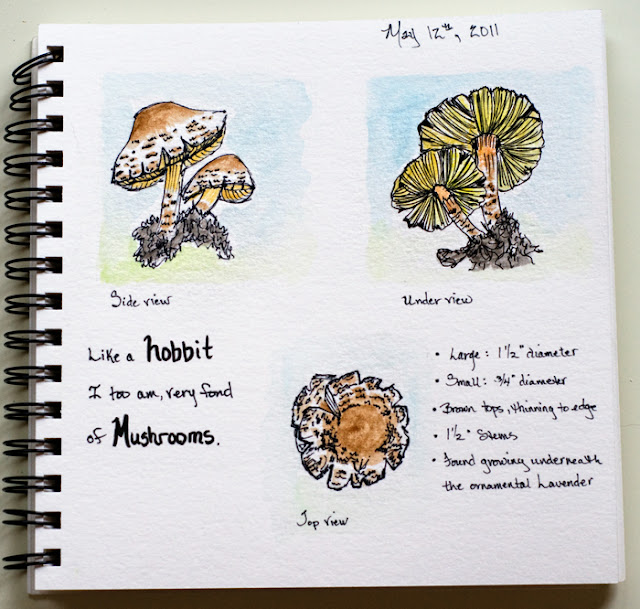 May 12th, 2011
Side view
Under view
Like a hobbit
I too am, very fond
of Mushrooms.
• Large: 1 1/2" diameter
• Small: 3/4" diameter
• Brown tops, thinning to edge
• 1 1/2" Stems
• Found growing underneath
the ornamental Lavender
Top view